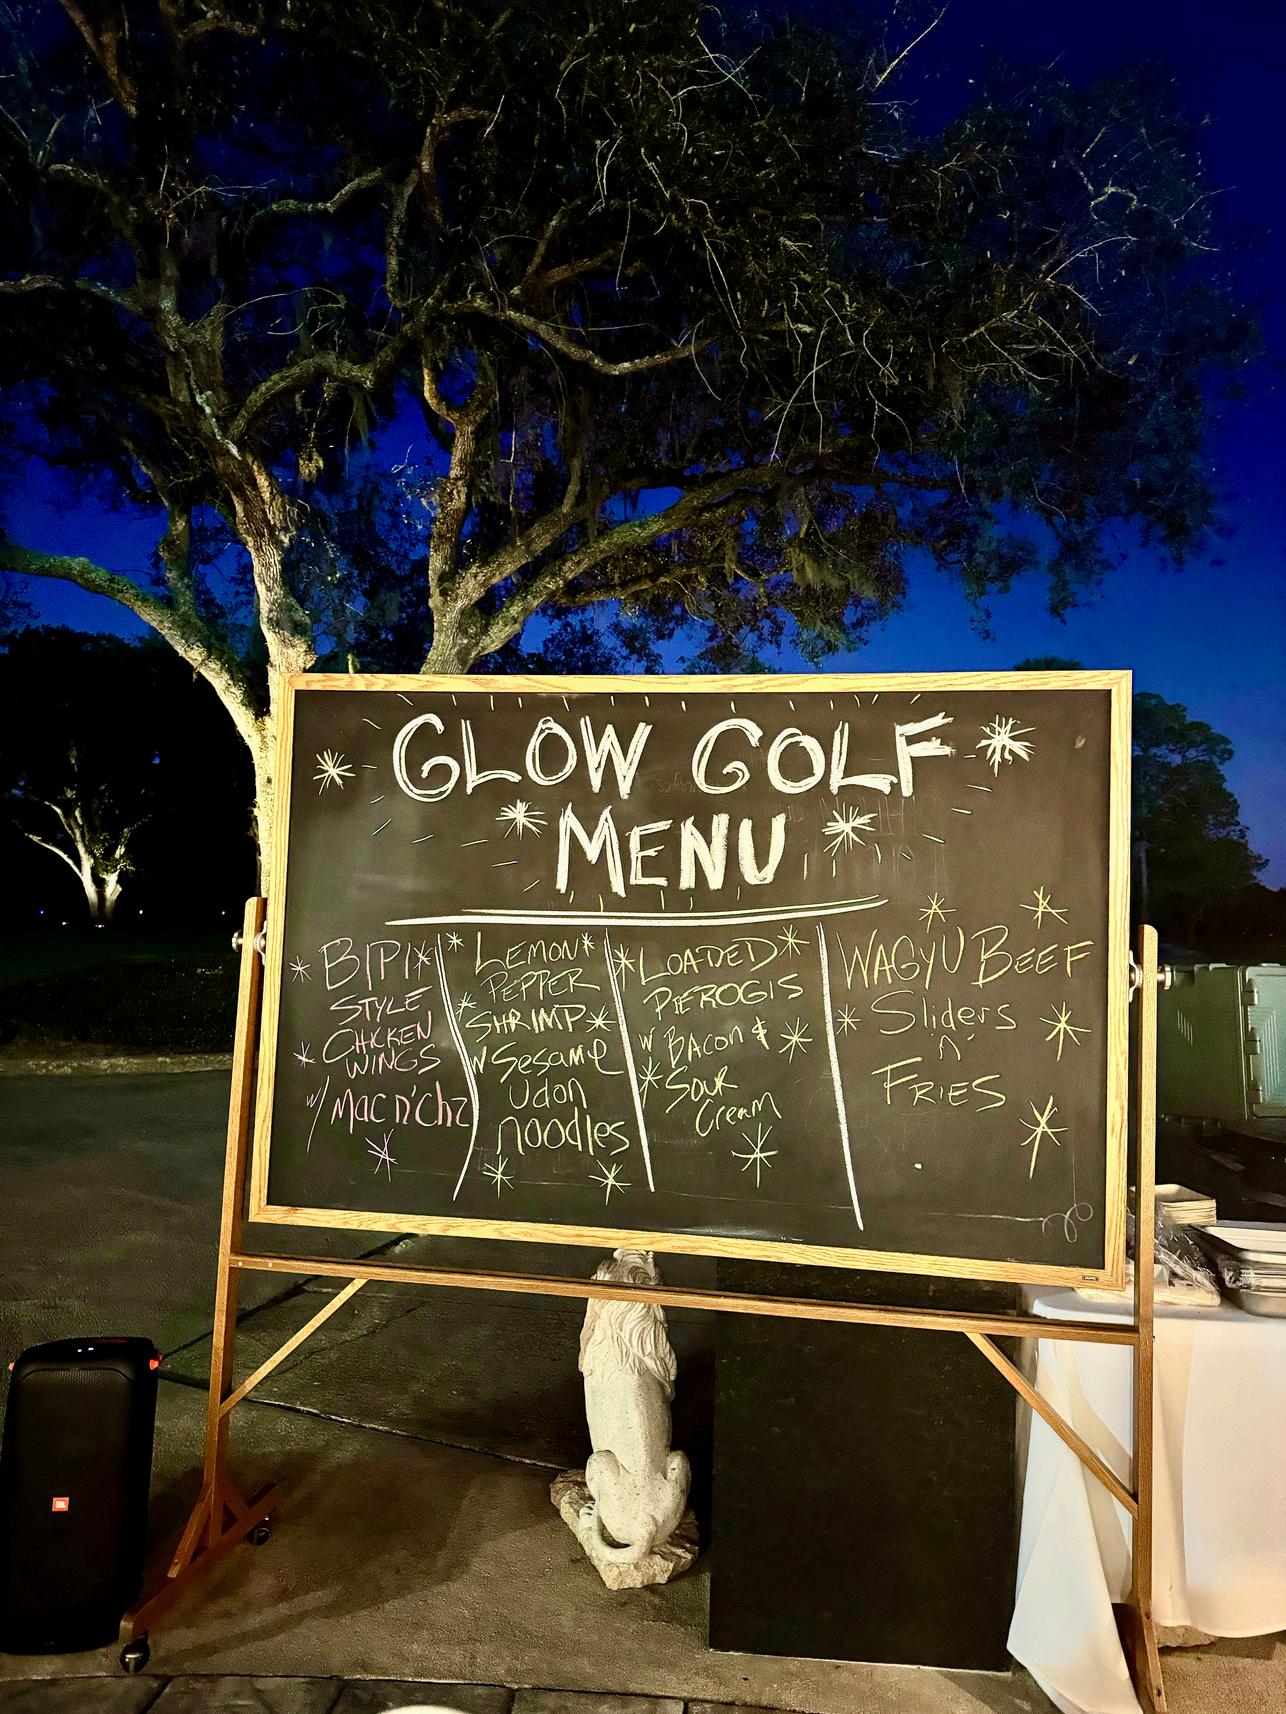 GLOW GOLF
MENU
BIPI
STYLE
CHICKEN
WINGS
w/ Mac n'chz
LEMON
PEPPER
SHRIMP
w Sesame
Udon
noodles
LOADED
PIEROGIS
w Bacon &
Sour
Cream
WAGYU BEEF
Sliders
'n'
FRIES
JBL